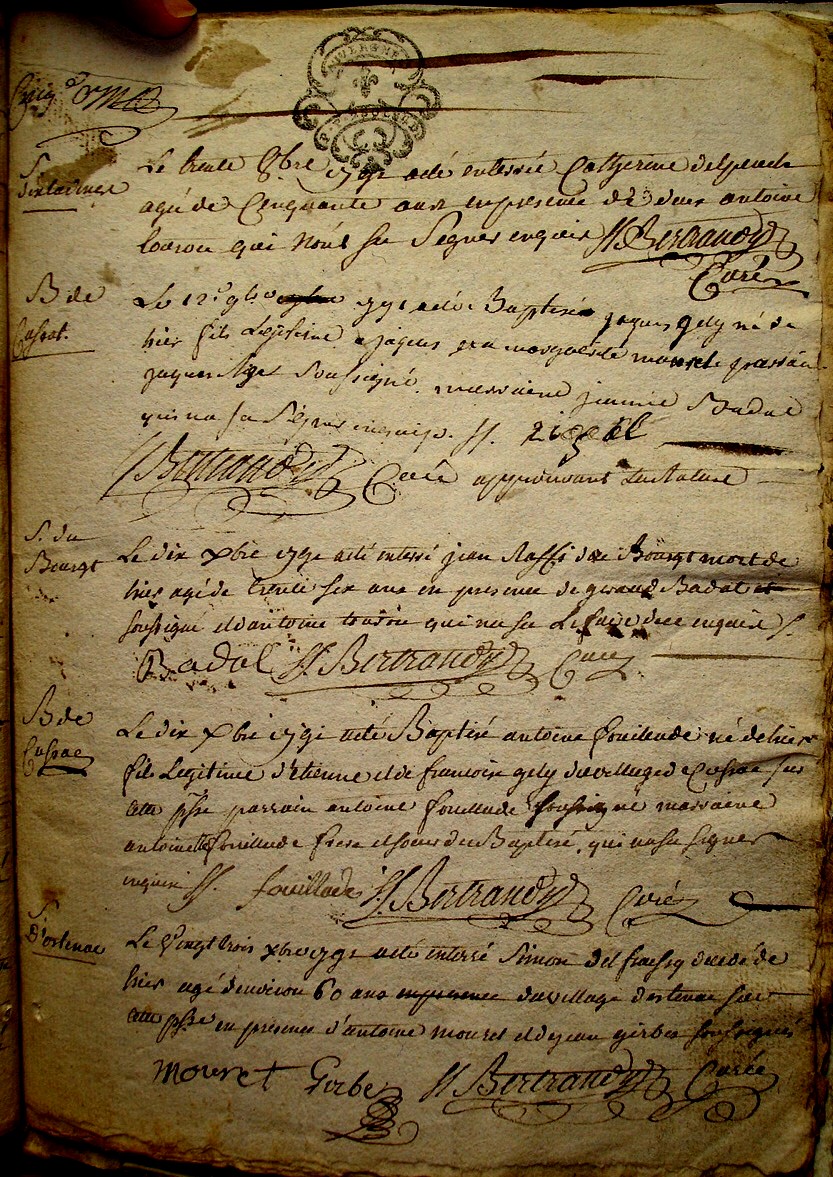 AUVERGNE
S.
Le trente 8bre 1791 a été enterrée Catherine delpeuch
agé de Cinquante ans en presence de deux antoine
qui n'ont su Signer enquis JJ Bertrandy
Curé
B de
Cussat.
Le 12e 9bre 1791 a été Baptisé jaques gely né de
hier fils Legitime a jaques et a margueritte mouret parrain
jaques soussigné marraine jeanne Badal
qui n'a su Signer enquise. JJ.
JJ Bertrandy Curé approuvant
S. du
Bourgt
Le dix Xbre 1791 a été enterré jean Raffi du Bourgt mort de
hier agé de trente six ans en presence de geraud Badal
soussigné et d'antoine qui n'a su Le faire de ce enquis
Badal JJ Bertrandy Curé
B de
Cussac
Le dix Xbre 1791 a été Baptisé antoine fouillade né de hier
fils Legitime d'Etienne et de francoise gely du village de Cussac sur
cette psse parrain antoine fouillade soussigné marraine
antoinette fouillade frere et soeur du Baptisé, qui n'a su signer
enquise JJ. fouillade JJ Bertrandy Curé
S.
D'ostenac
Le Vingt trois Xbre 1791 a été enterré Simon del fraissy decedé de
hier agé d'environ 60 ans en presence du village d'ostenac sur
cette psse en presence d'antoine mouret et de jean girbe soussignés
mouret Girbe JJ Bertrandy Curé